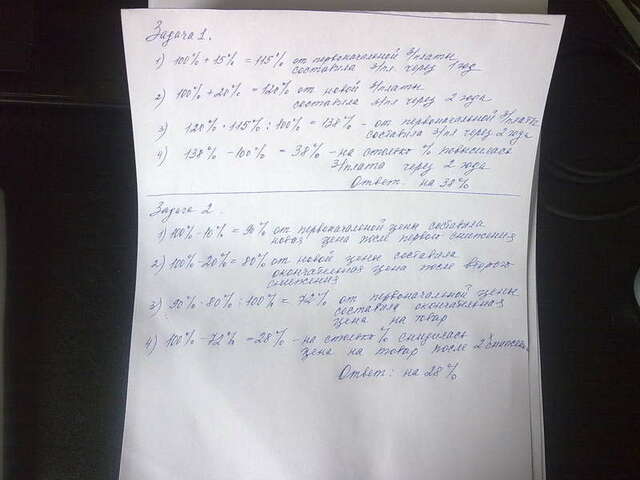 Задача 1.
1) 100% + 15% = 115% от первоначальной з/платы
составила з/пл. через 1 год
2) 100% + 20% = 120% от новой з/платы
составила з/пл через 2 года
3) 120% · 115% : 100% = 138% - от первоначальной з/платы
составила з/пл через 2 года
4) 138% - 100% = 38% - на столько % повысилась
з/плата через 2 года
Ответ: на 38%
Задача 2.
1) 100% - 10% = 90% от первоначальной цены составила
новая цена после первого снижения
2) 100% - 20% = 80% от новой цены составила
окончательная цена после второго
снижения
3) 90% · 80% : 100% = 72% от первоначальной цены
составила окончательная
цена на товар
4) 100% - 72% = 28% - на столько % снизилась
цена на товар после 2 снижен.
Ответ: на 28%